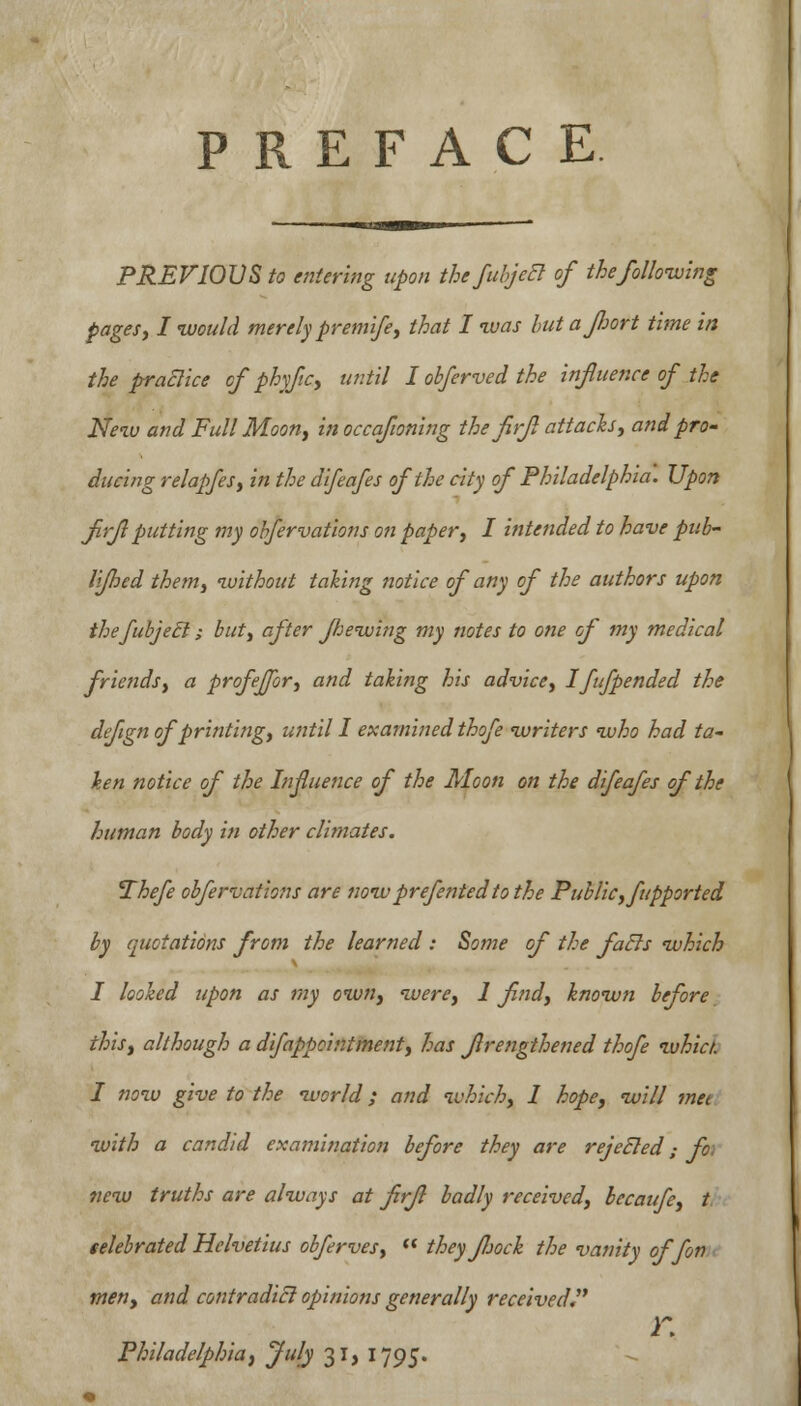 PREFACE.
PREVIOUS to entering upon the ſubject of the following
pages, I would merely premiſe, that I was but a ſhort time in
the practice of phyſic, until I obſerved the influence of the
New and Full Moon, in occaſioning the firſt attacks, and pro-
ducing relapſes, in the diſeaſes of the city of Philadelphia. Upon
firſt putting my obſervations on paper, I intended to have pub-
liſhed them, without taking notice of any of the authors upon
the ſubject; but, after ſhewing my notes to one of my medical
friends, a profeſſor, and taking his advice, I ſuſpended the
deſign of printing, until I examined thoſe writers who had ta-
ken notice of the Influence of the Moon on the diſeaſes of the
human body in other climates.
Theſe obſervations are now preſented to the Public, ſupported
by quotations from the learned: Some of the facts which
I looked upon as my own, were, I find, known before
this, although a diſappointment, has ſtrengthened thoſe which
I now give to the world; and which, I hope, will mee
with a candid examination before they are rejected; ſo
new truths are always at firſt badly received, becauſe, t
celebrated Helvetius obſerves, “ they ſhock the vanity of ſom
men, and contradict opinions generally received.”
Y.
Philadelphia, July 31, 1795.